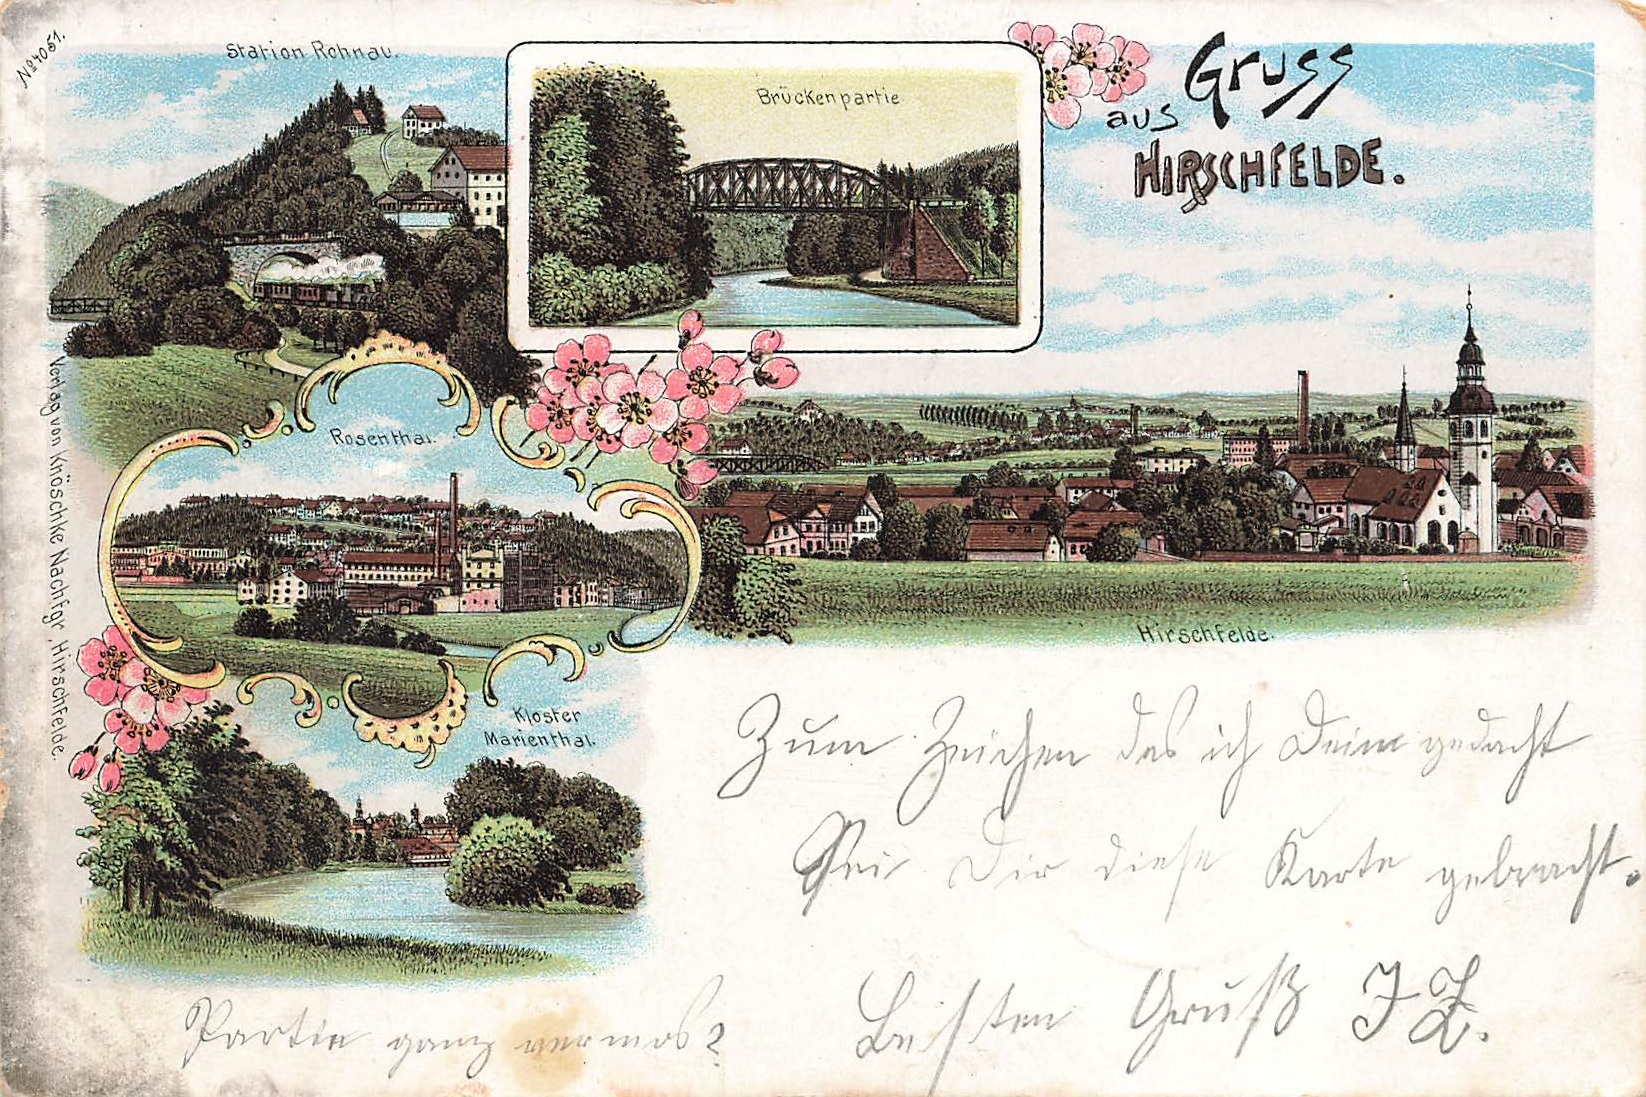 No 4051.
Station Rohnau.
Brückenpartie
Gruss
aus
HIRSCHFELDE.
Rosenthal.
Hirschfelde.
Kloster
Marienthal.
Verlag von Knöschke Nachfgr, Hirschfelde.
Zum Zeichen das ich Deine gedacht
Sei Dir diese Karte gebracht.
Besten Gruß J Z.
Partie ganz